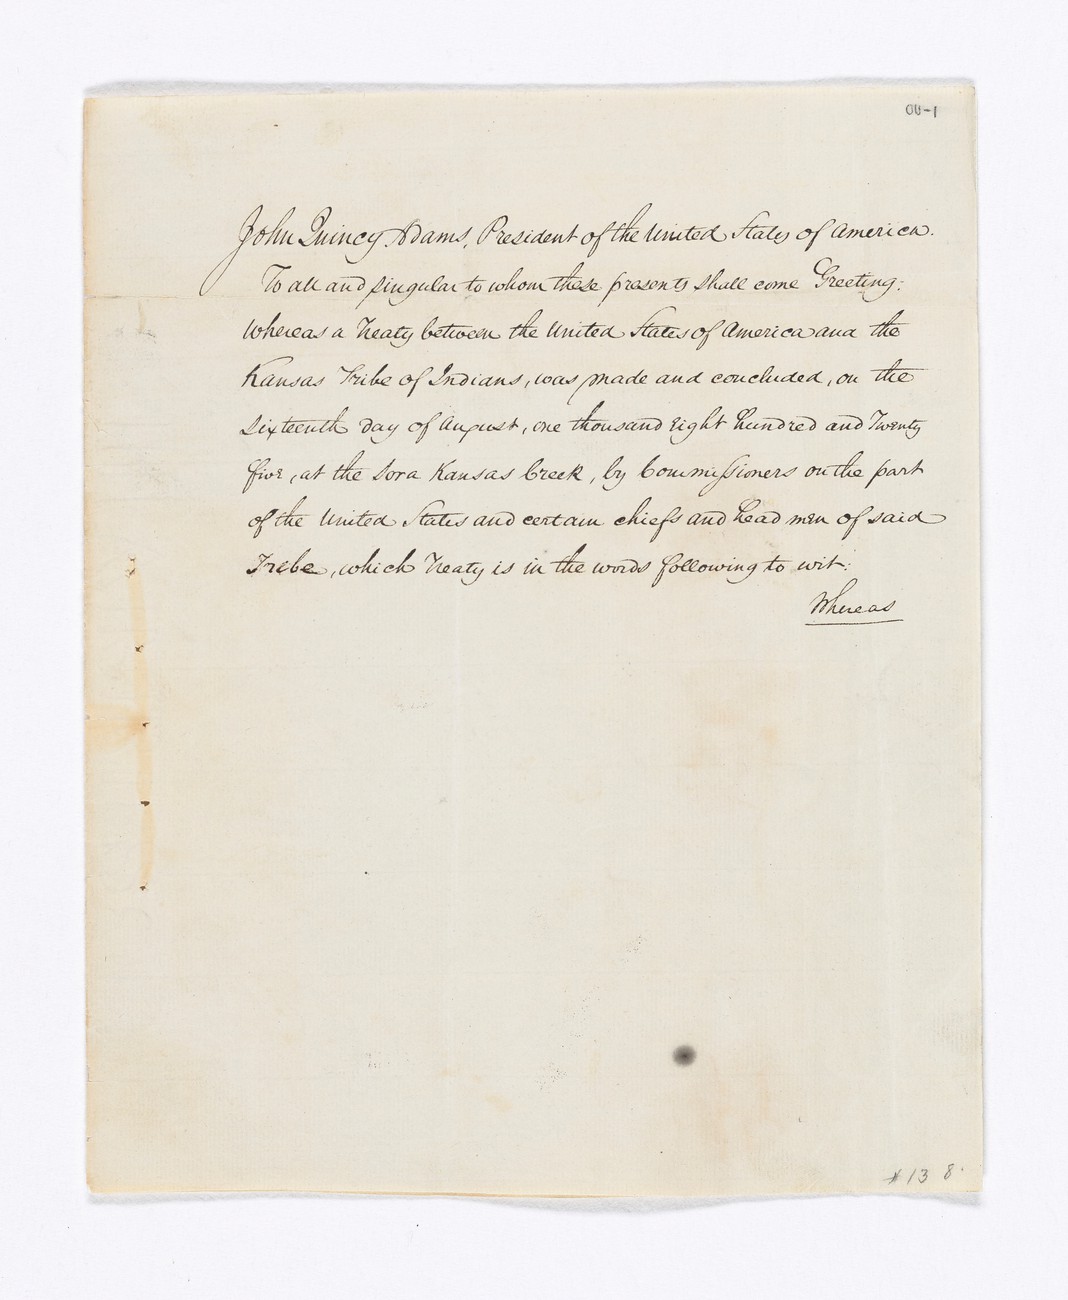 00-1
John Quincy Adams, President of the United States of America.
To all and singular to whom these presents shall come Greeting:
Whereas a Treaty between the United States of America and the
Kansas Tribe of Indians, was made and concluded, on the
Sixteenth day of August, one thousand Eight hundred and Twenty
five, at the Sora Kansas Creek, by Commissioners on the part
of the United States and certain chiefs and head men of said
Tribe, which Treaty is in the words following to wit:
Whereas
#13 8